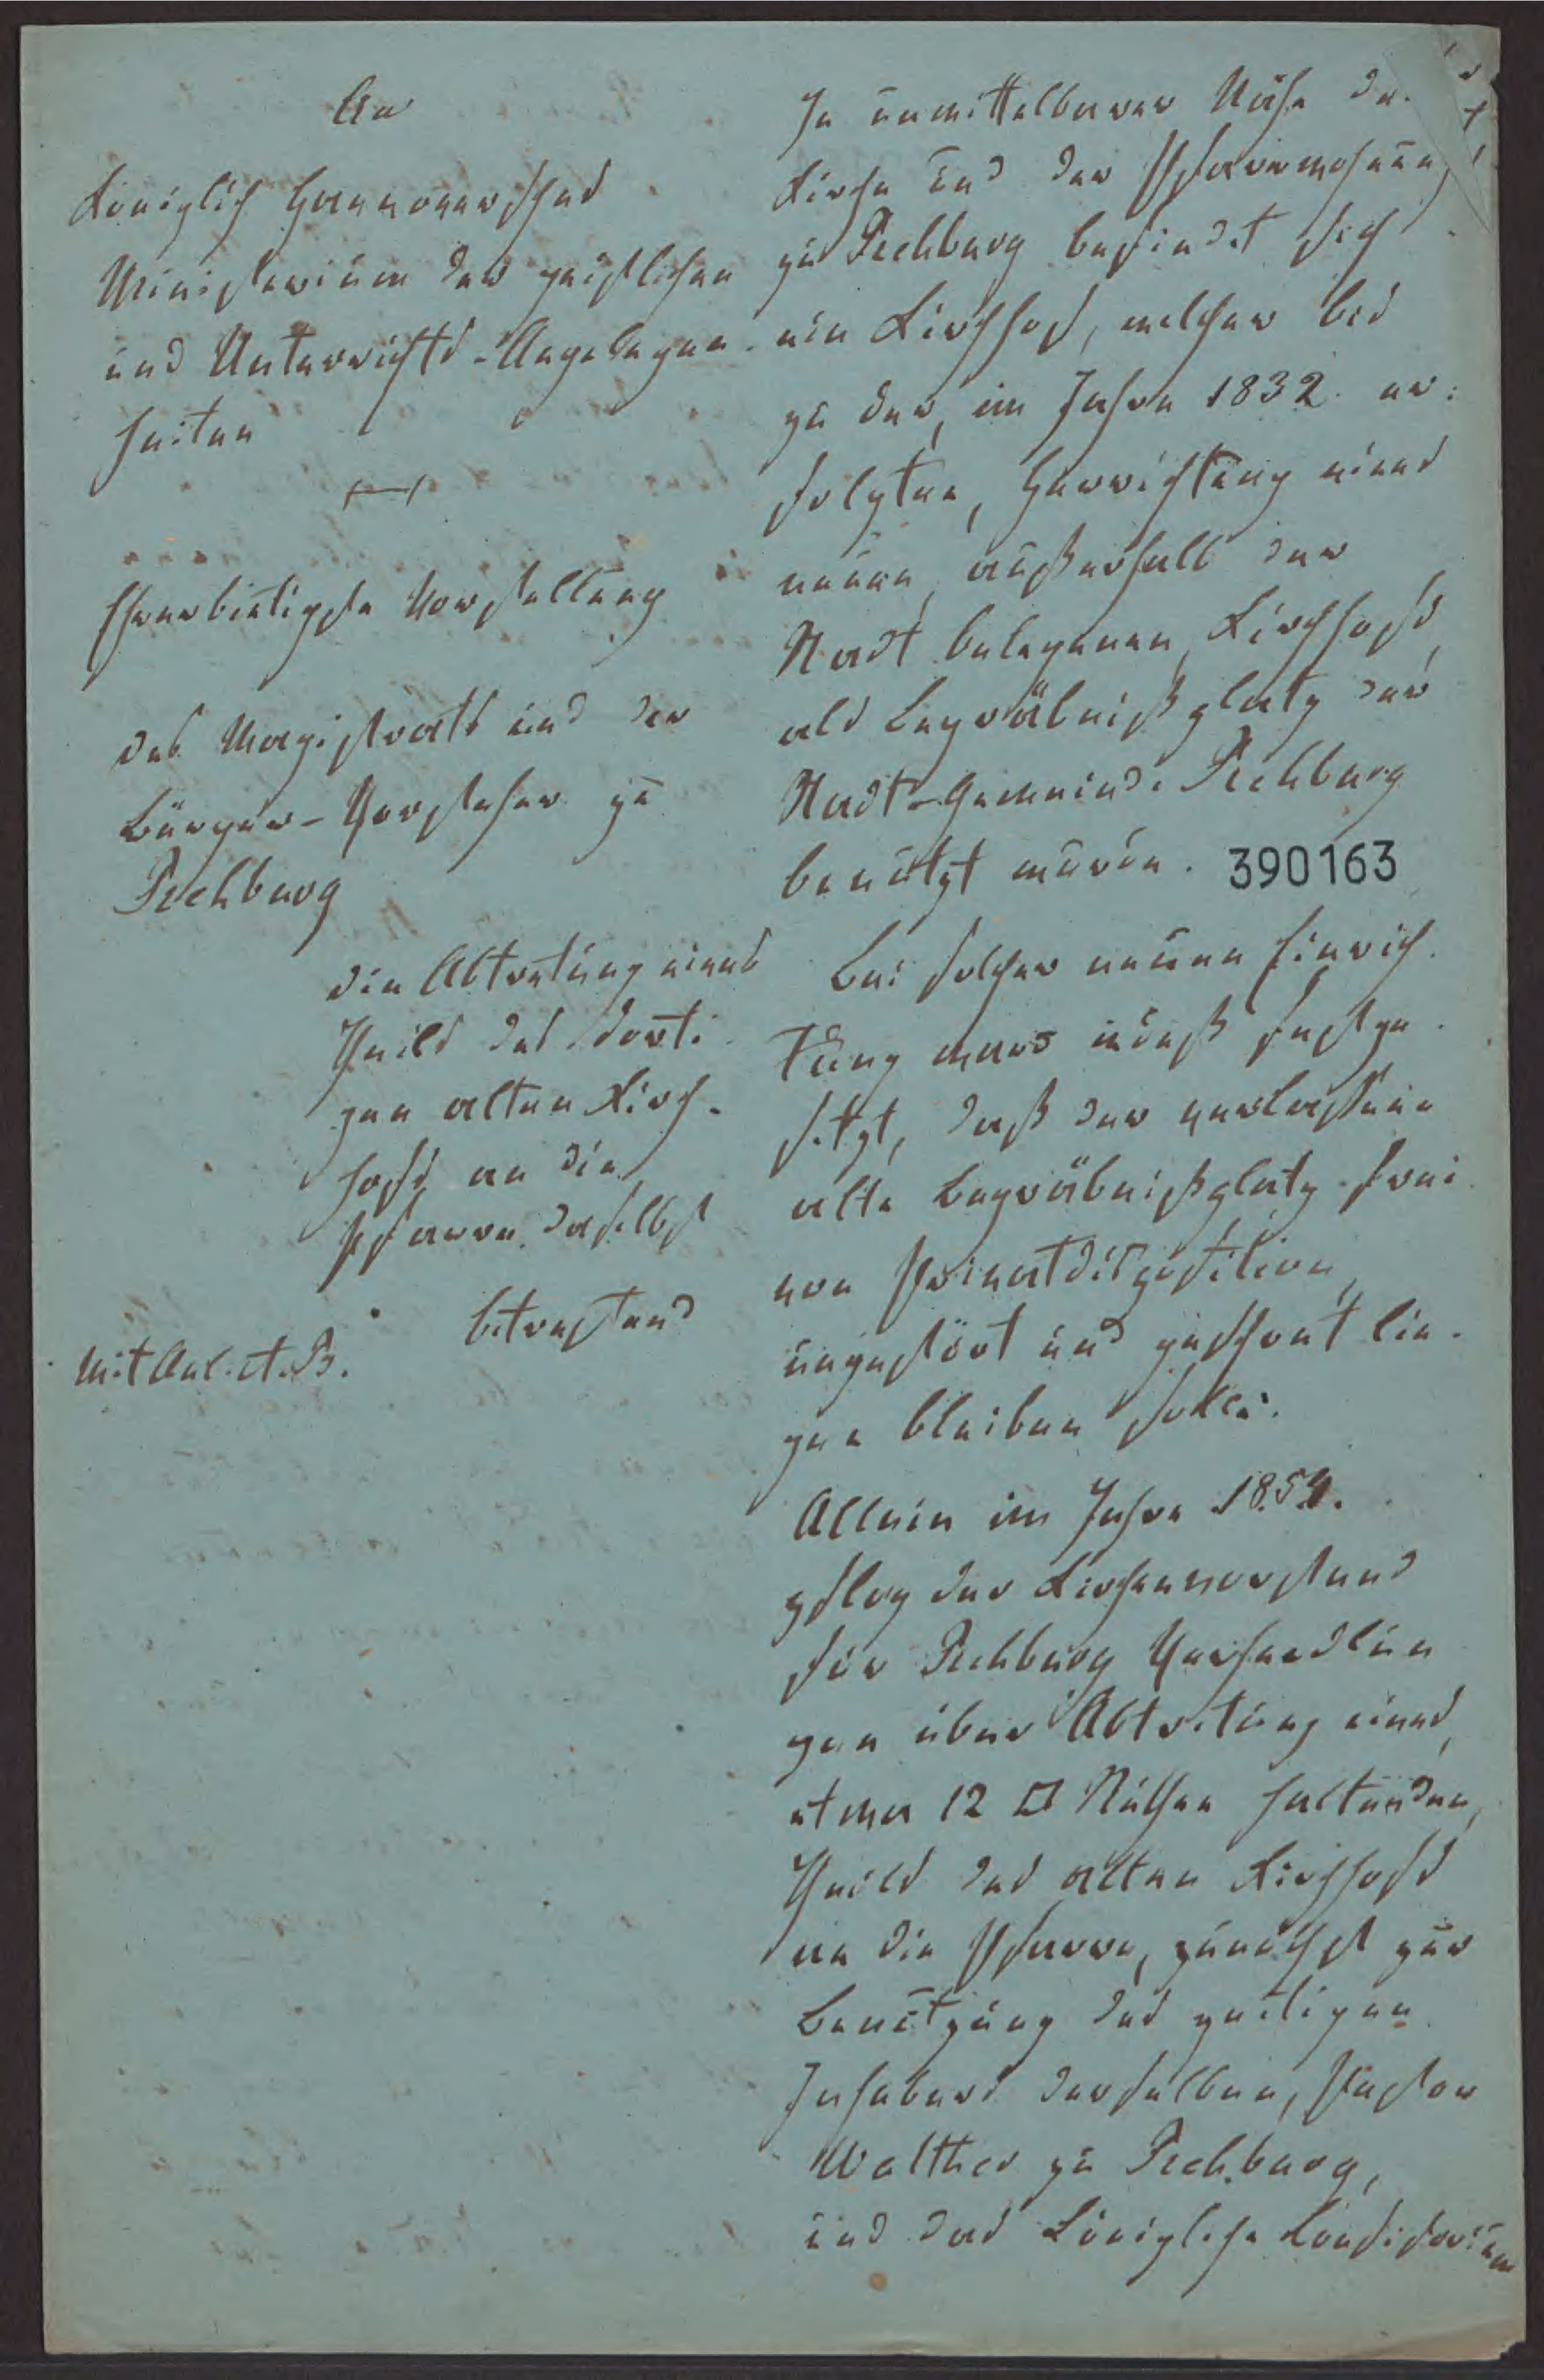 An
Königlich Hannoversches
Ministerium der geistlichen
und Unterrichts-Angelegen-
heiten
Ehrerbietigste Vorstellung
des Magistrats und der
Bürger-Vorsteher zu
Rehburg
die Abtretung eines
Theils des dorti-
gen alten Kirch-
hofs an die
Pfarre daselbst
betreffend
Mit Anl. A. B.
In unmittelbarer Nähe der
Kirche und der Pfarrwohnung
zu Rehburg befindet sich
ein Kirchhof, welcher bis
zu der, im Jahre 1832 er-
folgten, Herrichtung eines
neuen, außerhalb der
Stadt belegenen, Kirchhofs,
als Begräbnißplatz der
Stadt-Gemeinde Rehburg
benutzt wurde. 390163
Bei solcher neuen Einrich-
tung ward indeß festge-
setzt, daß der verlassene
alte Begräbnißplatz frei
von Privatdisposition,
ungestört und geschont lie-
gen bleiben solle.
Allein im Jahre 1854.
pflog der Kirchenvorstand
für Rehburg Verhandlun
gen über Abtretung eines,
etwa 12 □ Ruthen haltenden,
Theils des alten Kirchhofs
an die Pfarre, zunächst zur
Benutzung des zeitigen
Inhabers derselben, Pastor
Walther zu Rehburg,
und das Königliche Consistorium